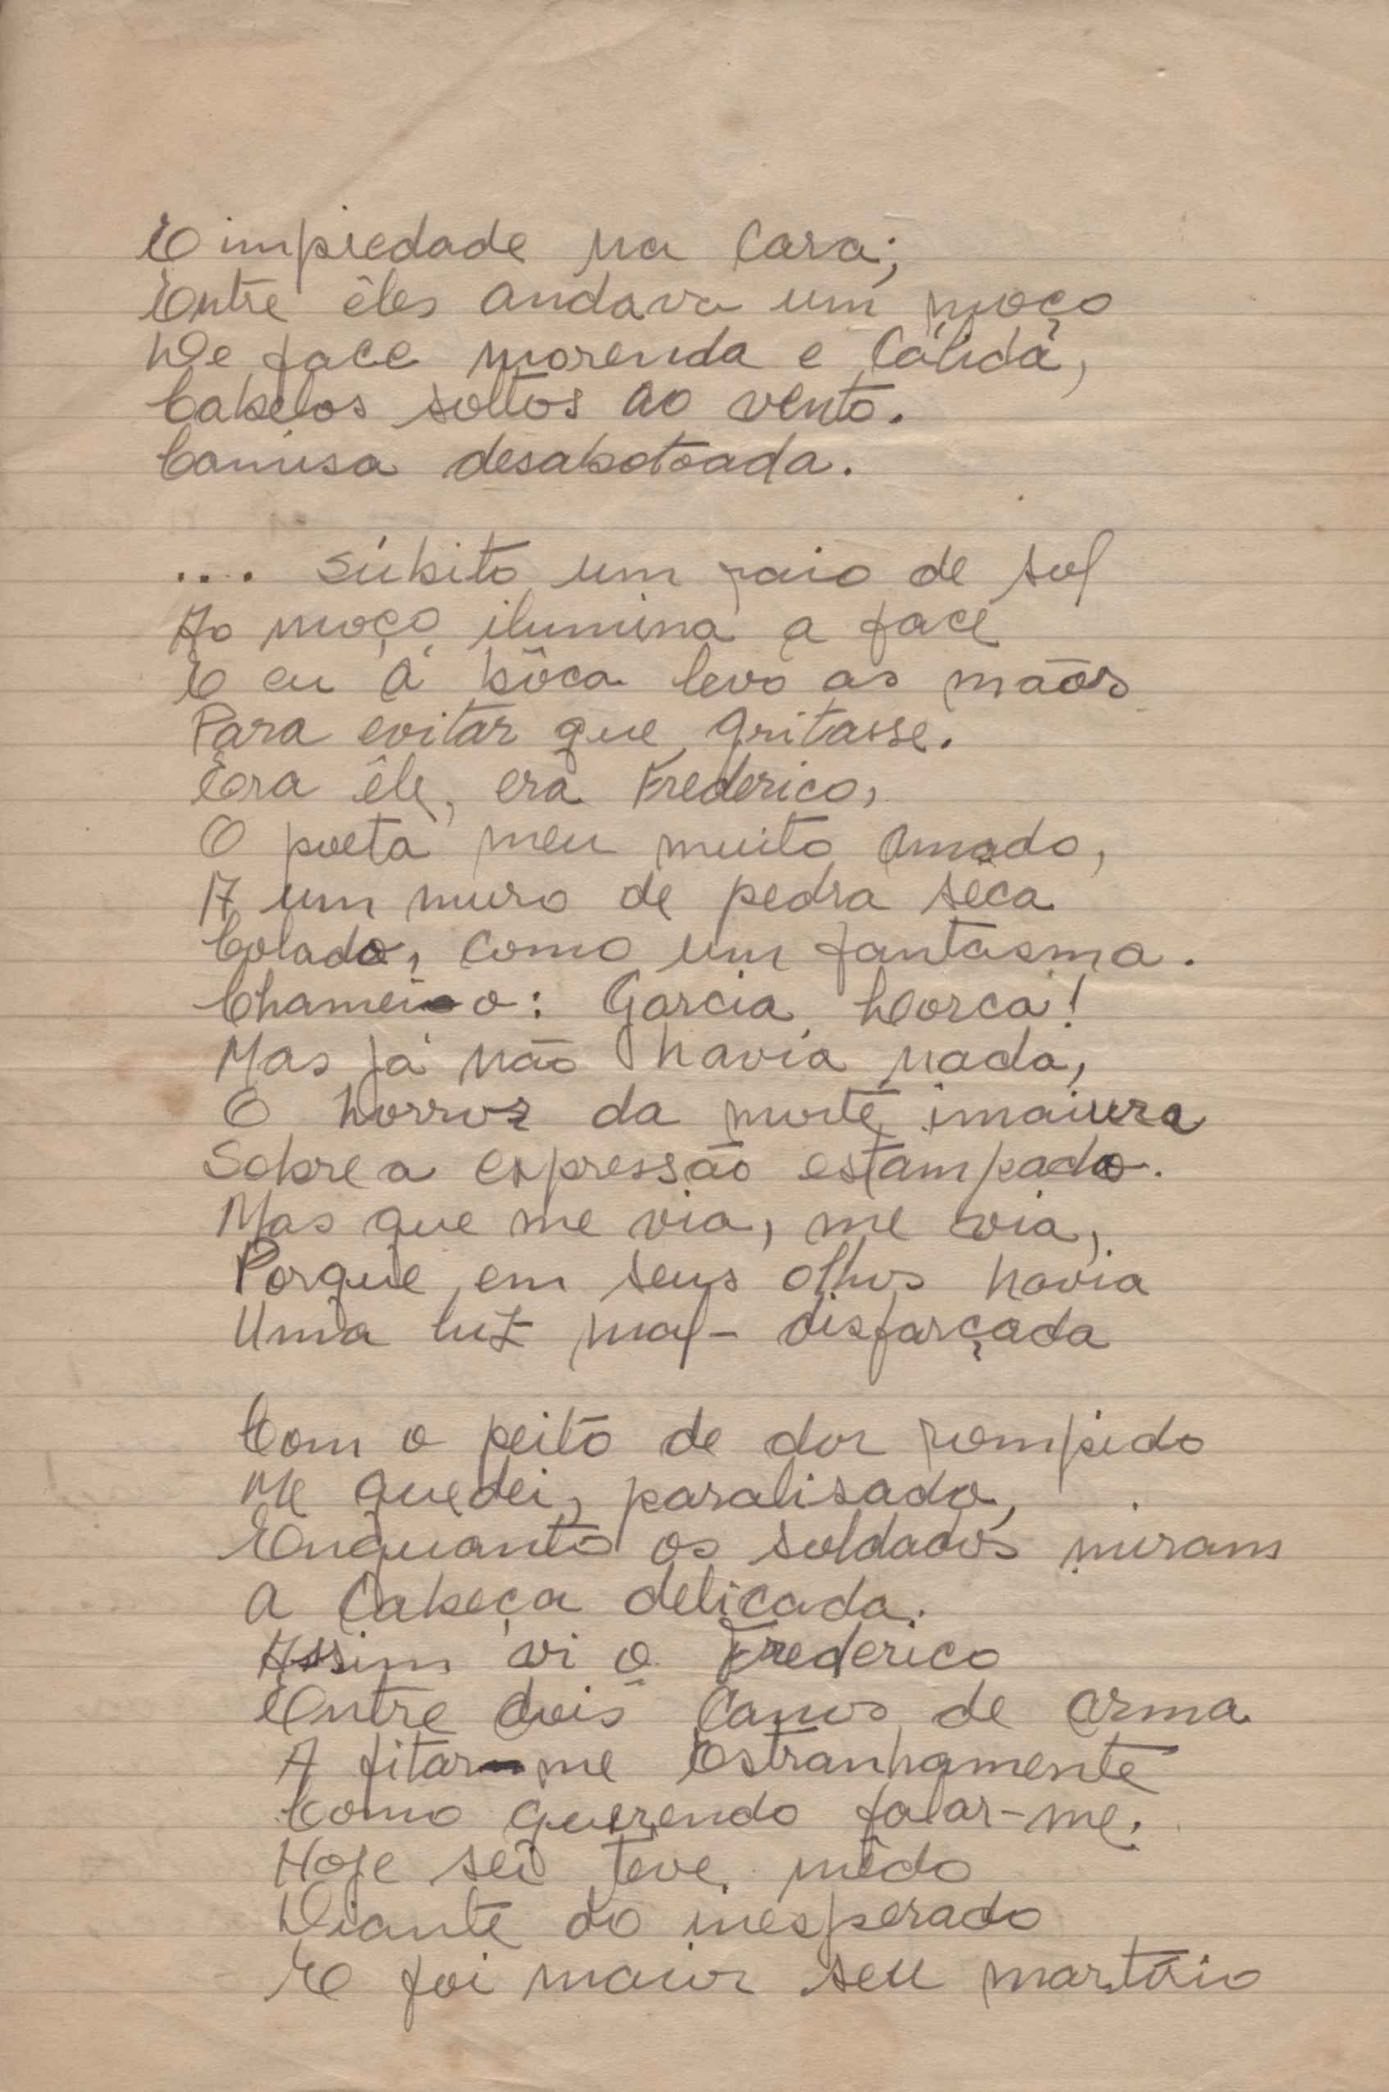 E impiedade na cara;
Entre êles andava um moço
De face morenda e cálida,
Cabelos soltos ao vento.
Camisa desabotoada.
.... Súbito um raio de sol
Ao moço ilumina a face
E eu à bôca levo as mãos
Para evitar que gritasse.
Era êle, era Frederico,
O poeta meu muito amado,
A um muro de pedra sêca
Colado, como um fantasma.
Chamei-o: Garcia Lorca!
Mas já não havia nada,
O horror da morte imatura
Sobre a expressão estampado.
Mas que me via, me via,
Porque em seus olhos havia
Uma luz mal-disfarçada
Com o peito de dor rompido
Me quedei, paralisado,
Enquanto os soldados miram
A cabeça delicada.
Assim vi o Frederico
Entre dois canos de arma
A fitar-me estranhamente
Como querendo falar-me.
Hoje sei teve mêdo
Diante do inesperado
E foi maior seu martírio